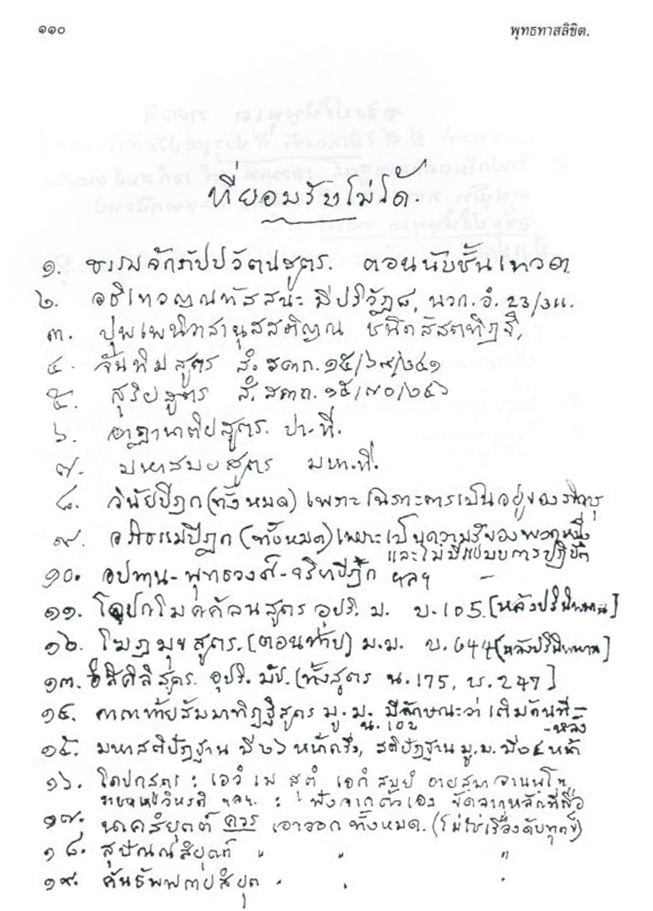 ๑๑๐ พุทธทาสลิขิต.
ที่ยอมรับไม่ได้.
๑. ธรรมจักกัปปวัตนสูตร. ตอนนับชั้นเทวดา
๒. อธิเทวญาณทัสสนะ มีปริวัฏ ๘, นวก.อํ. 23/311.
๓. ปุพเพนิวาสานุสสติญาณ ชนิดสัสตทิฏฐิ,
๔. จันทิมสูตร สํ. สคาถ. ๑๕/๖๙/๒๔๑
๕. สุริยสูตร สํ. สคาถ. ๑๕/๗๐/๒๔๖
๖. อาฏานาติยสูตร. ปา.ที.
๗. มหาสมยสูตร มหา.ที.
๘. วินัยปิฎก (ทั้งหมด) เพราะเฉพาะการเป็นอยู่ของภิกษุ
๙. อภิธรรมปิฎก (ทั้งหมด) เพราะเป็นความรู้ของพวกหนึ่ง
และไม่มีแบบการปฏิบัติ
๑๐. อปทาน-พุทธวงศ์-จริยาปิฎก ฯลฯ
๑๑. โคปกโมคคัลลานสูตร อุปริ. ม. บ. 105. [หลังปรินิพพาน]
๑๒. โฆฏมุขสูตร. (ตอนท้าย) ม.ม. บ. 644 [หลังปรินิพพาน]
๑๓. อิสิคิลิสูตร. อุปริ. มัช. [ทั้งสูตร น. 175, บ. 247]
๑๔. สัมมาทิฏฐิสูตร มู.ม. น. 102 มีลักษณะว่า เติมต้นที-
หลัง
๑๕. มหาสติปัฏฐาน มี ๒๖ หน้าครึ่ง, สติปัฏฐาน มู.ม. มี ๑๔ หน้า
๑๖. : เอวํ เม สุตํ เอกํ สมยํ อายสฺมา อานนฺโท
วิหรติ ฯลฯ. : ฟังจากตัวเอง ขัดจากหลักที่สื่อ
๑๗. นาคสังยุตต์ ควร เอาออกทั้งหมด. (ไม่ใช่เรื่องดับทุกข์)
๑๘. สุปัณณสังยุตต์ " " "
๑๙. คันธัพพกายสังยุต " " "